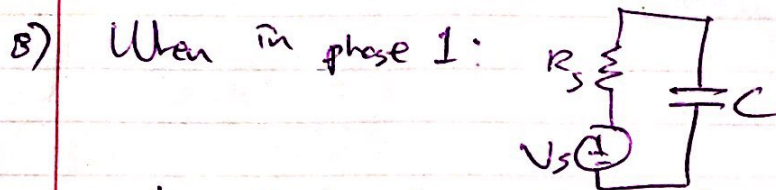 B) When in phase 1:
Rs
C
Vs